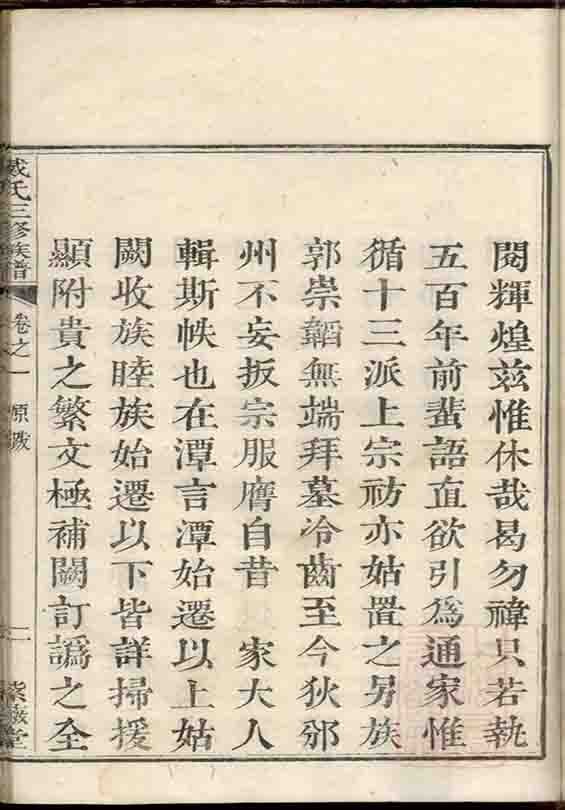 閱輝煌茲惟休哉曷勿禕只若執
五百年前蜚語直欲引爲通家惟
循十三派上宗祊亦姑置之另族
郭崇韜無端拜墓冷齒至今狄邠
州不妄扳宗服膺自昔　家大人
輯斯帙也在潭言潭始遷以上姑
闕收族睦族始遷以下皆詳掃援
顯附貴之繁文極補闕訂譌之全
戴氏三修族譜 卷之一 原跋 二 堂